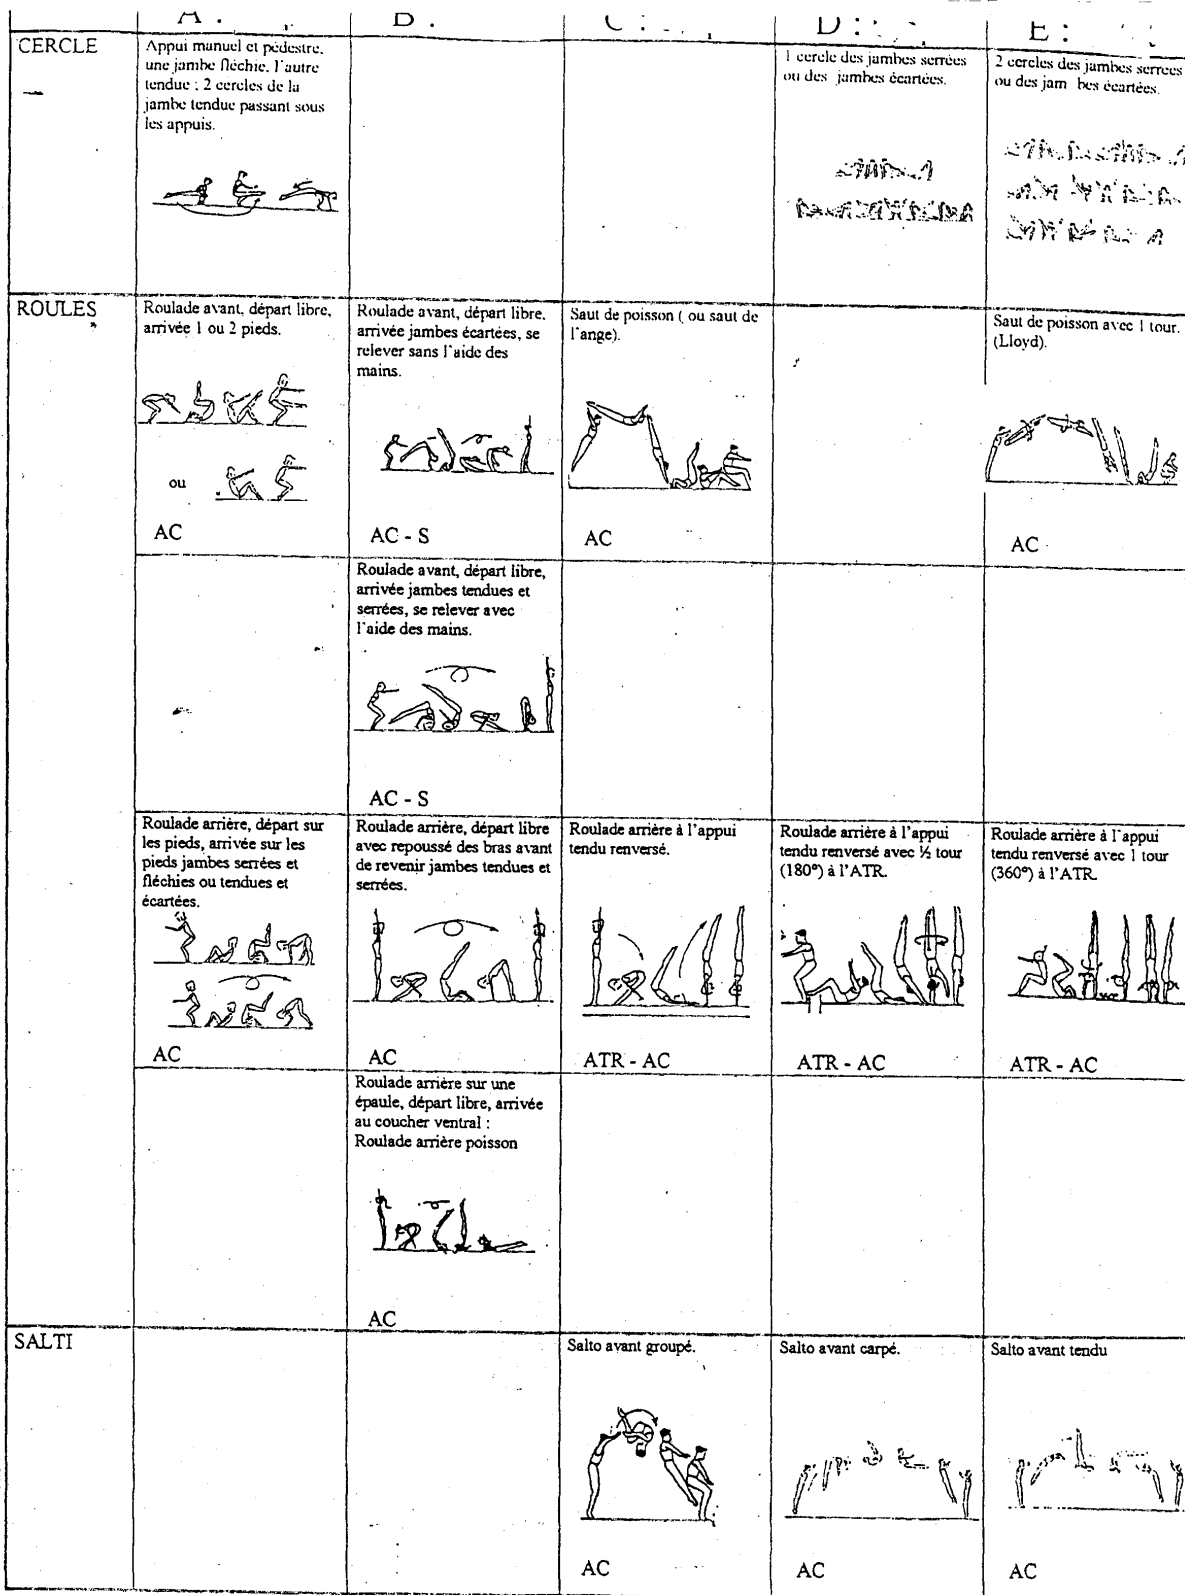 A :
B :
C :
D :
E :
CERCLE
Appui manuel et pédestre,
une jambe fléchie, l'autre
tendue : 2 cercles de la
jambe tendue passant sous
les appuis.
1 cercle des jambes serrées
ou des jambes écartées.
2 cercles des jambes serrées
ou des jam bes écartées.
ROULES
Roulade avant, départ libre,
arrivée 1 ou 2 pieds.
ou
AC
Roulade avant, départ libre,
arrivée jambes écartées, se
relever sans l'aide des
mains.
AC - S
Saut de poisson ( ou saut de
l'ange).
AC
Saut de poisson avec 1 tour.
(Lloyd).
AC
Roulade avant, départ libre,
arrivée jambes tendues et
serrées, se relever avec
l'aide des mains.
AC - S
Roulade arrière, départ sur
les pieds, arrivée sur les
pieds jambes serrées et
fléchies ou tendues et
écartées.
AC
Roulade arrière, départ libre
avec repoussé des bras avant
de revenir jambes tendues et
serrées.
AC
Roulade arrière à l'appui
tendu renversé.
ATR - AC
Roulade arrière à l'appui
tendu renversé avec ½ tour
(180°) à l'ATR.
ATR - AC
Roulade arrière à l'appui
tendu renversé avec 1 tour
(360°) à l'ATR.
ATR - AC
Roulade arrière sur une
épaule, départ libre, arrivée
au coucher ventral :
Roulade arrière poisson
AC
SALTI
Salto avant groupé.
AC
Salto avant carpé.
AC
Salto avant tendu
AC